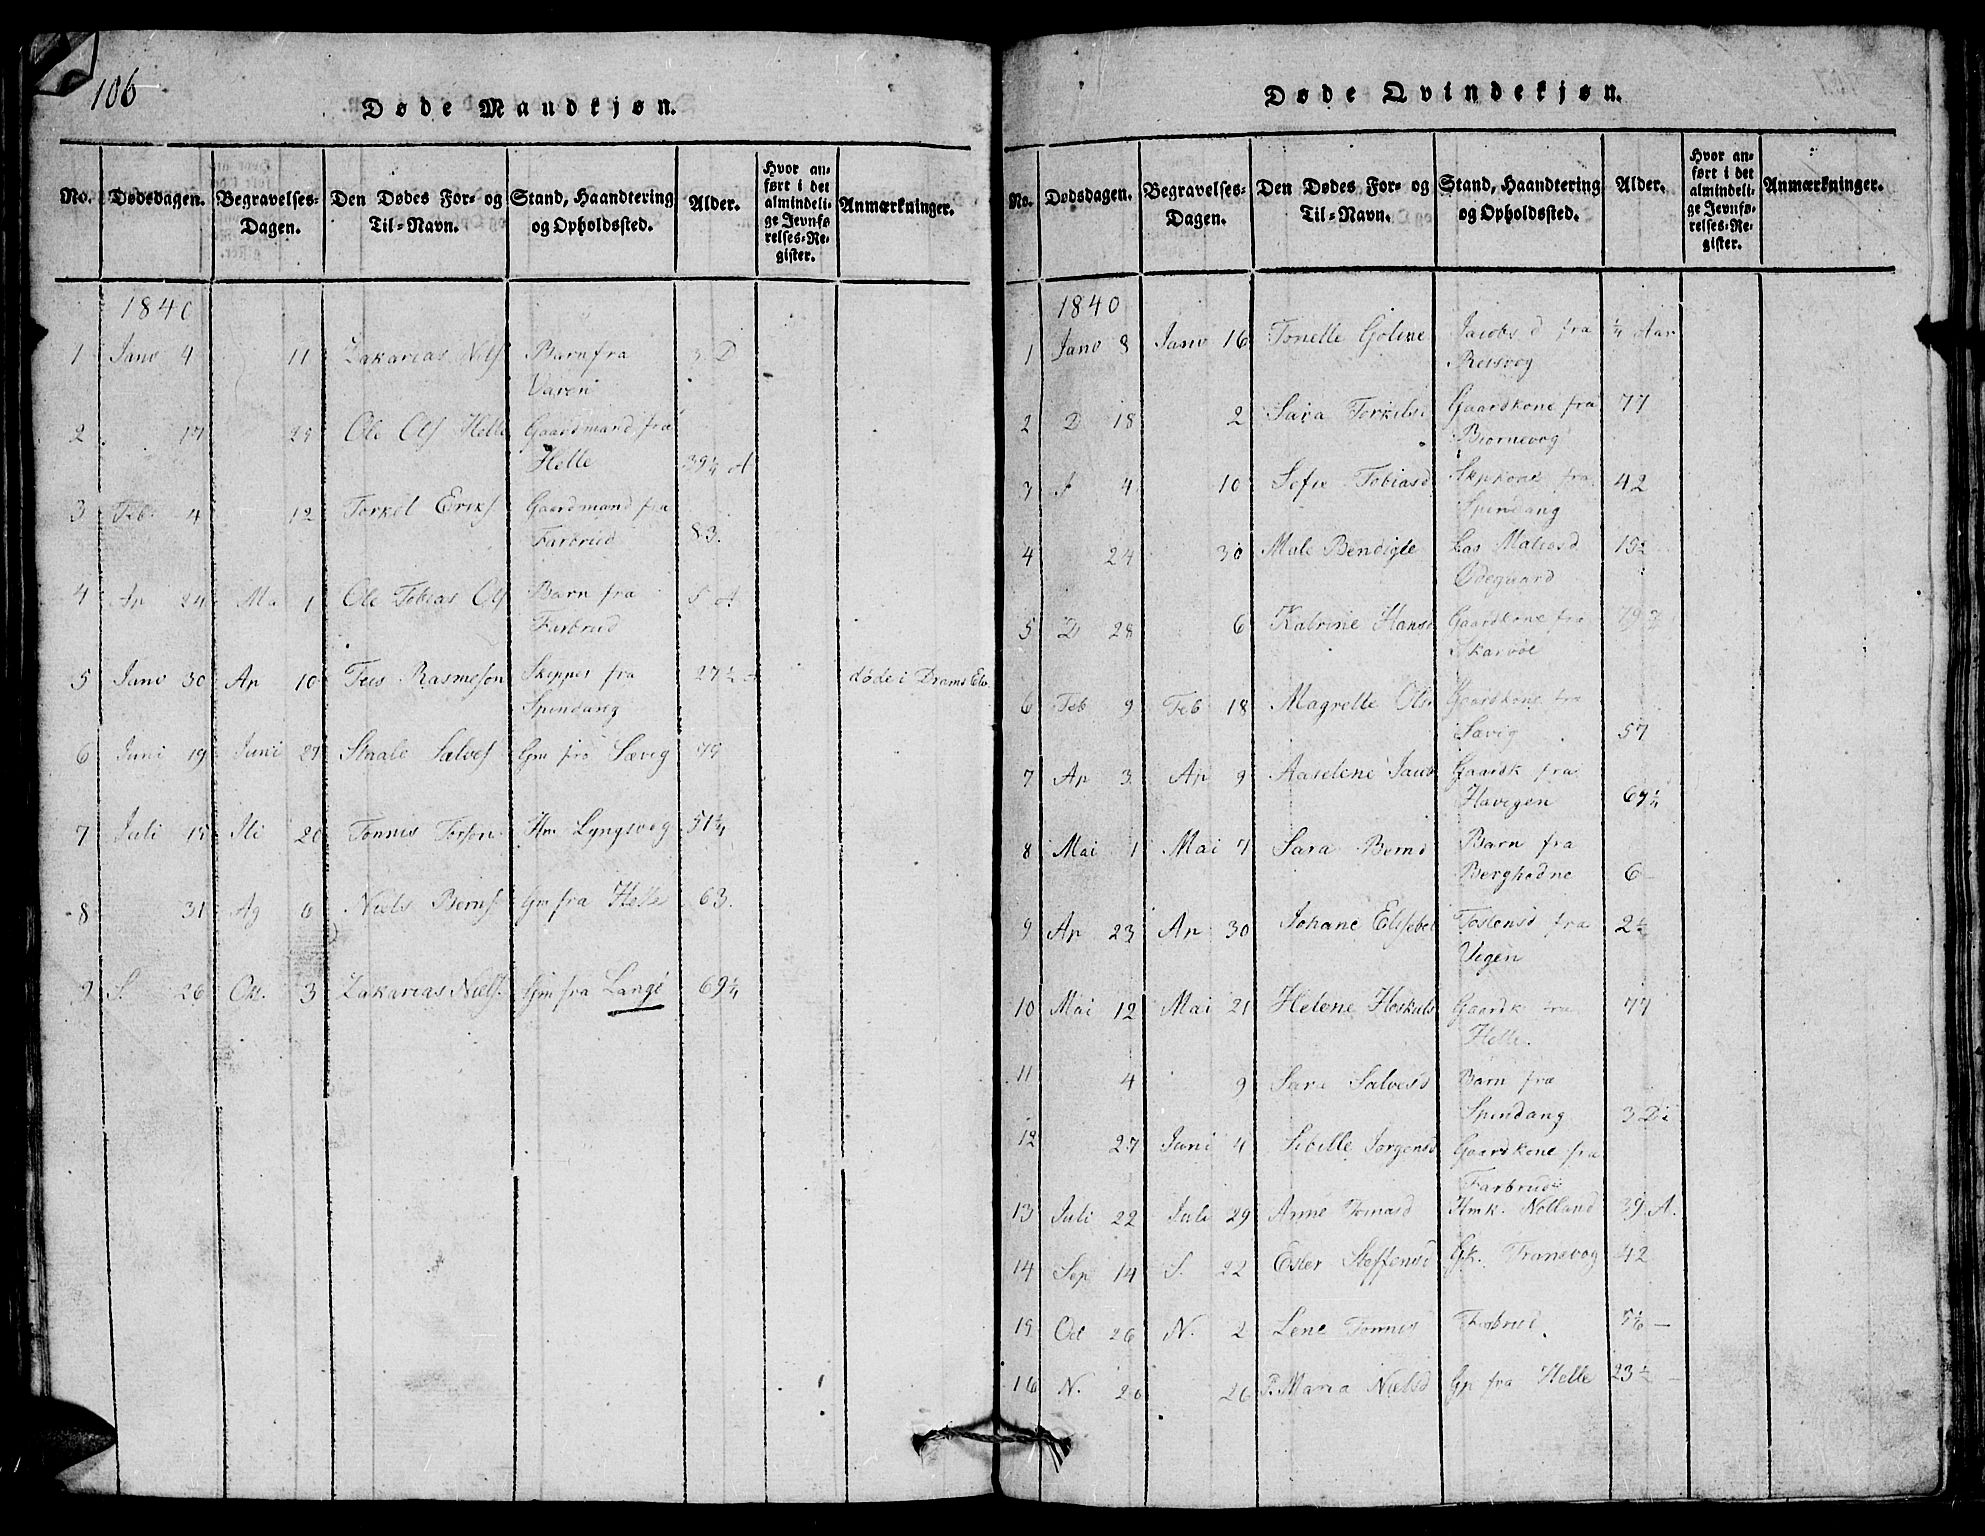 106
Døde Mandkjøn.
No. Dødsdagen. Begravelses-Dagen. Den Dødes For- og Til-Navn. Stand, Haandtering og Opholdssted. Alder. Hvor anført i det almindelige Jevnførelses-Register. Anmærkninger.
1840
1 Janv 4 11 Zakarias Nils Barn fra 3 D
Varen
2 17 Ole Ols Helle Gaardmand fra
Helle 39 1/4 A
3 Feb. 4 12 Torkel Eriks Gaardmand fra
Farbrud 83.
4 Ap 24 Ma 1 Ole Tobias Ols Barn fra 5 A
Farbrud
5 Janv 30 Ap 10 Teis Rasmeson Skipper fra 27 1/2
Spindang døde i Drams Elv
6 Juni 19 Juni 27 Staale Salves Gm fra Sævig 79
7 Juli 15 Jli 20 Tonnis Torson Hm Lyngsvog 51 1/4
8 31 Ag 6 Niels Berns Gm fra Helle 63.
9 S. 26 Okt. 3 Zakarias Niels. Gm fra Lange 69 1/4
Døde Qvindekjøn.
No. Dødsdagen. Begravelses-Dagen. Den Dødes For- og Til-Navn. Stand, Haandtering og Opholdssted. Alder. Hvor anført i det almindelige Jevnførelses-Register. Anmærkninger.
1840
1 Janv 8 Janv 16 Tonelle Goline Jacobs d fra 1/4 Aar
Reisvog
2 D 18 2 Sara Torkils Gaardkone fra 77
Biornevog
3 4 10 Sofie Tobiasd Skpkone fra 42
Spindang
4 24 30 Male Bendigte Matiasd
Ødegaard
5 D 28 6 Katrine Hansd Gaardkone fra
6 Feb 9 Feb 18 Magrette Ols Gaardkone fra
Savig 57
7 Ap 3 Ap 9 Aaselene Jacob Gaardk fra
Havigen 67 1/4
8 Mai 1 Mai 7 Sara Bernd Barn fra
Berghodne 6
9 Ap 23 Ap 30 Johane Elisebet Tostensd fra 2 1/2
Vegen
10 Mai 12 Mai 21 Helene Hoskuls Gaardk fra 77
Helle.
11 4 9 Sara Salvesd Barn fra
Spindang 3 D
12 27 Juni 4 Sibille Jorgensd Gaardkone fra
Farbrud
13 Juli 22 Juli 29 Anne Tomasd Hmk. Nolland 39 A.
14 Sep 14 S. 22 Ester Steffensd Gk. Tranevog 42
15 Oct 26 N. 2 Lene Tonnis Farbrud
16 N. 20 26 Maria Nielsd Gp fra Helle 23 1/2